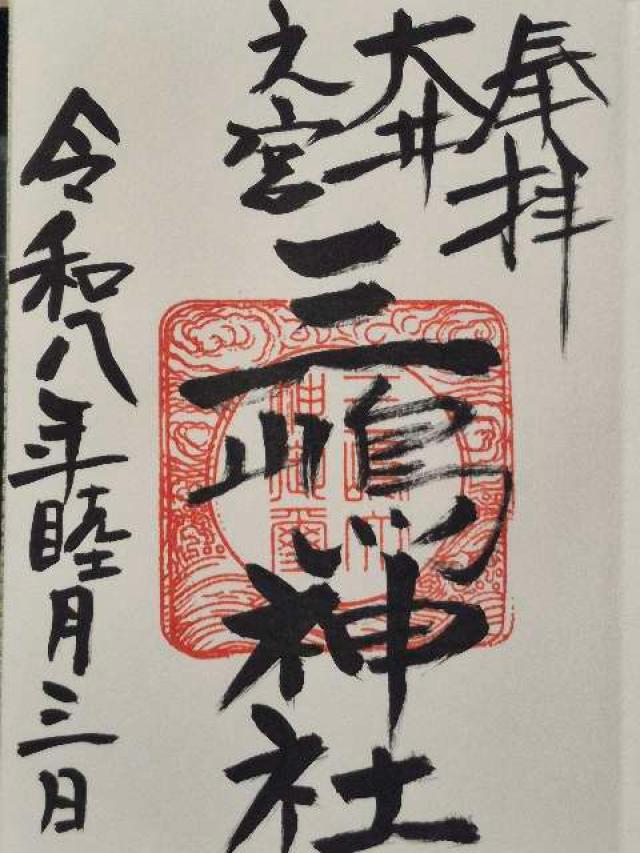 奉拝
大井
之宮
三嶋神社
令和八年睦月三日